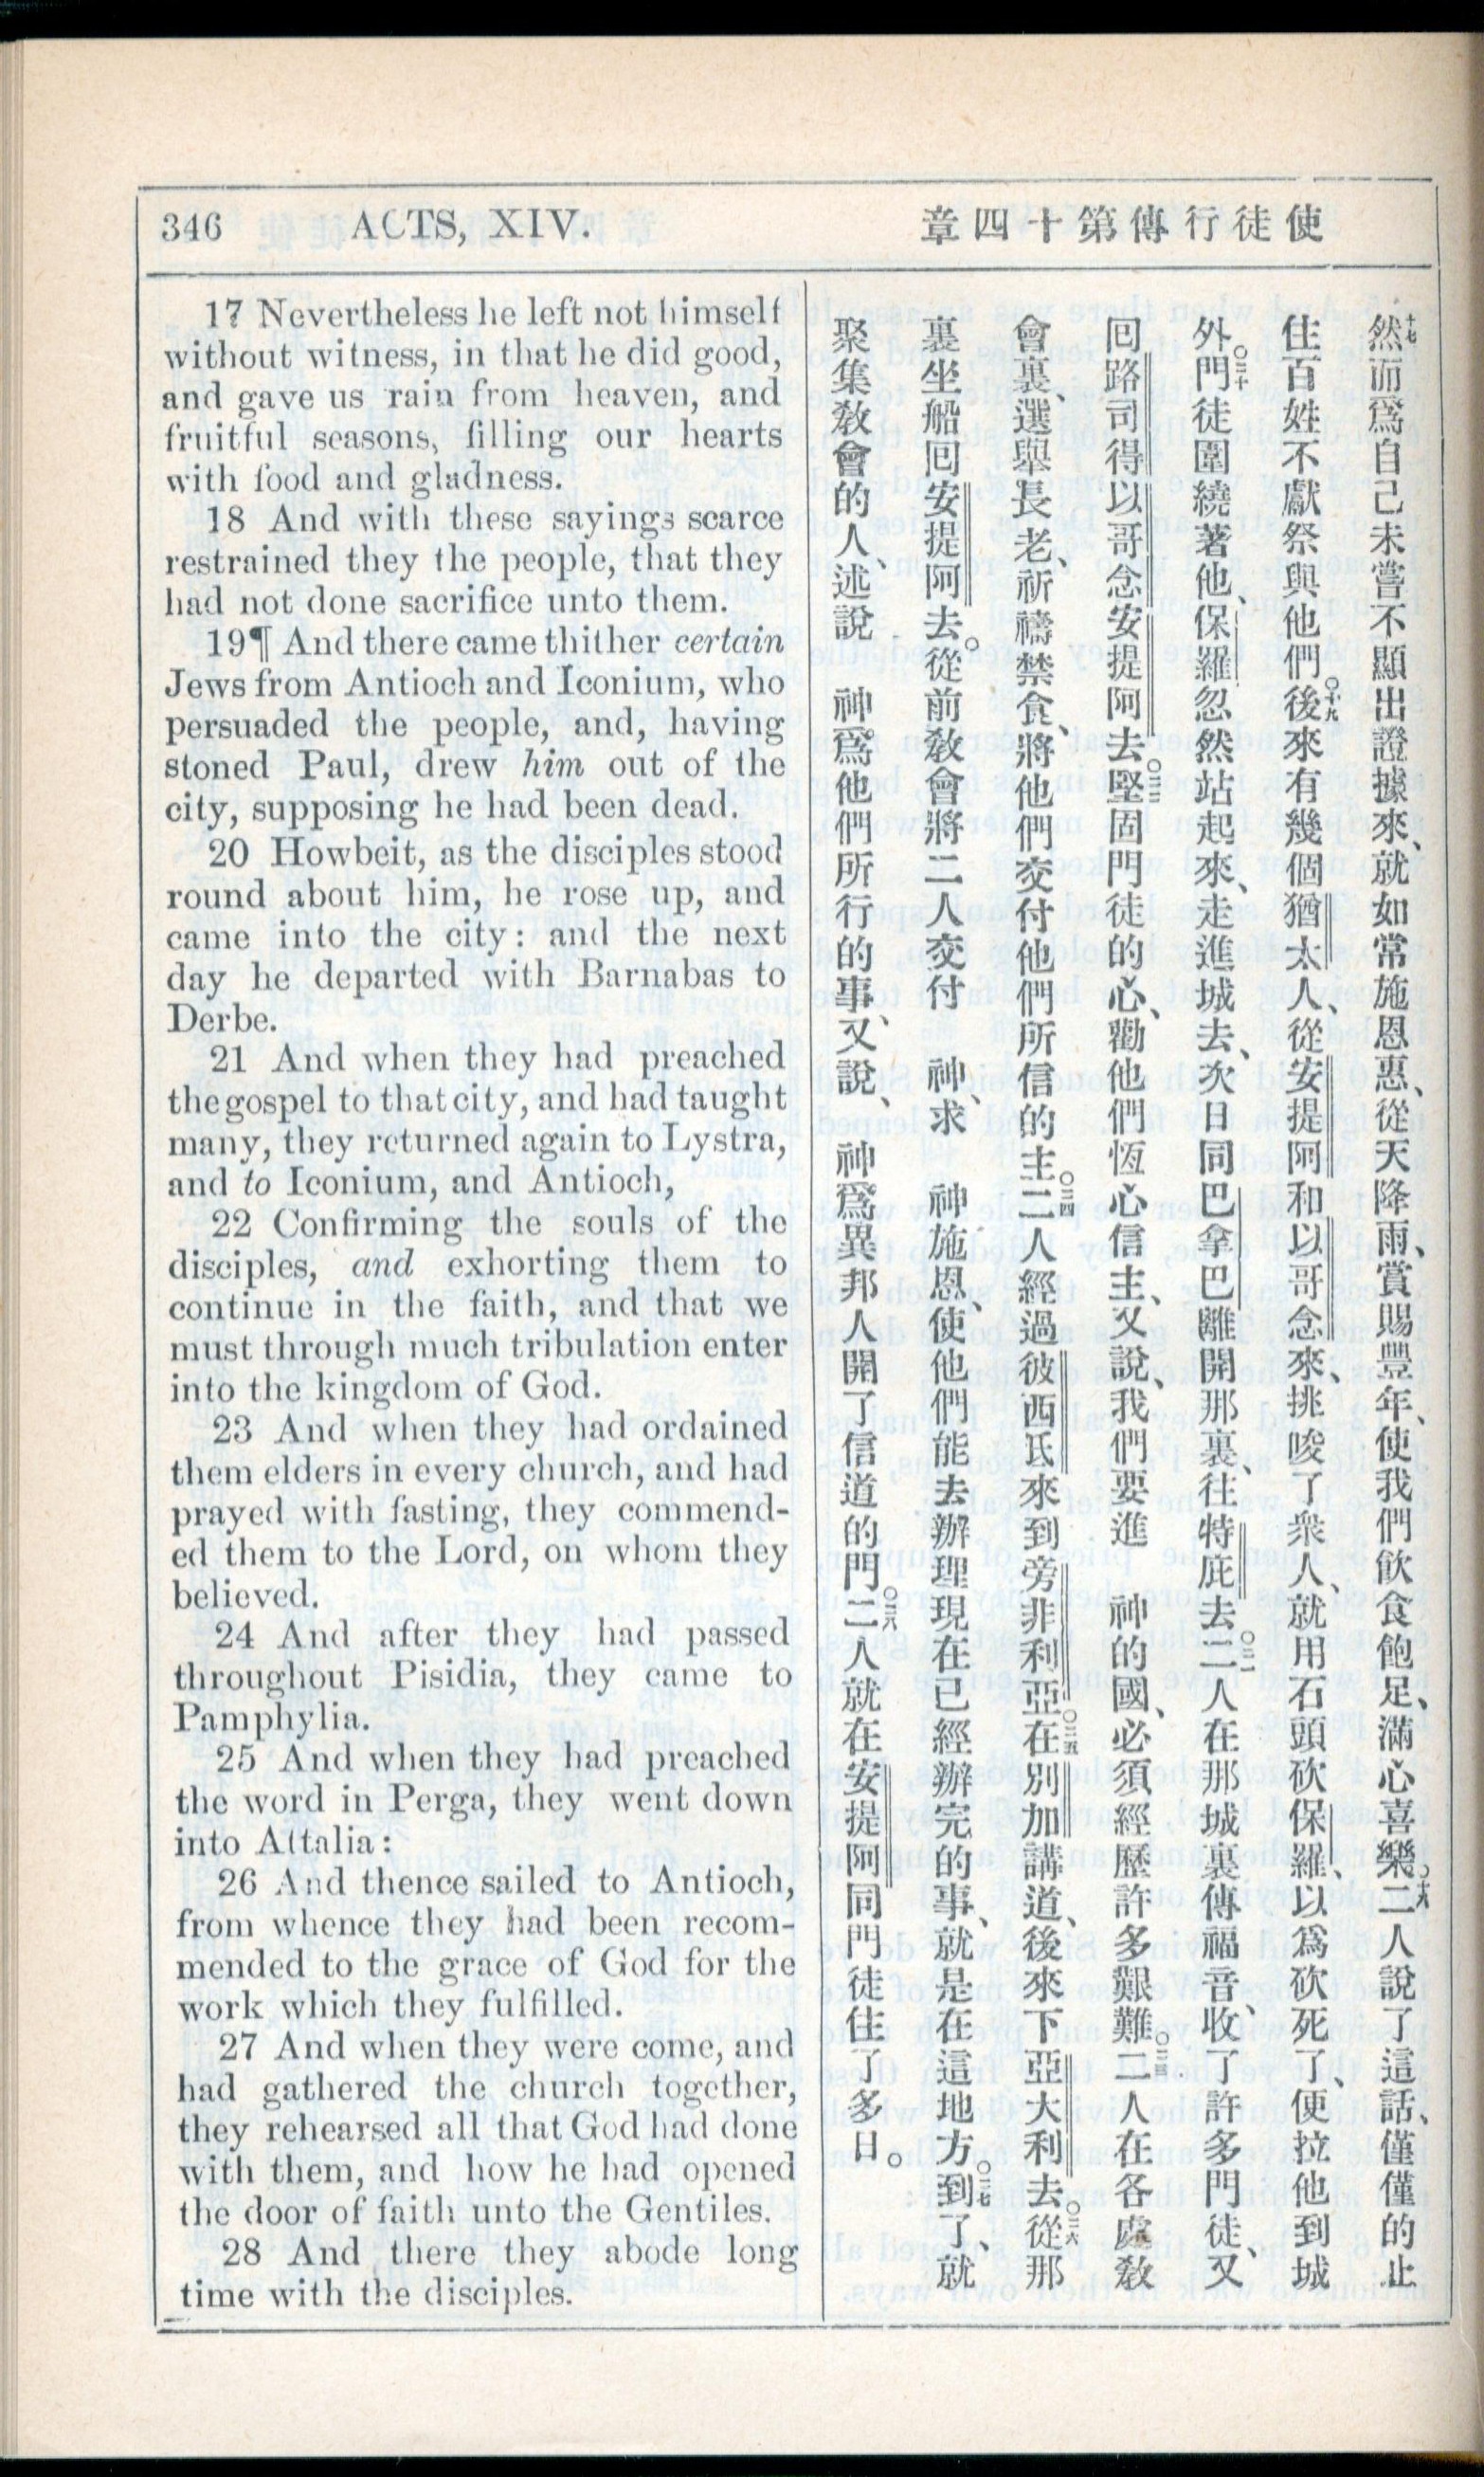 346 ACTS, XIV.
使徒行傳第十四章
17 Nevertheless he left not himself
without witness, in that he did good,
and gave us rain from heaven, and
fruitful seasons, filling our hearts
with food and gladness.
18 And with these sayings scarce
restrained they the people, that they
had not done sacrifice unto them.
19¶ And there came thither certain
Jews from Antioch and Iconium, who
persuaded the people, and, having
stoned Paul, drew him out of the
city, supposing he had been dead.
20 Howbeit, as the disciples stood
round about him, he rose up, and
came into the city: and the next
day he departed with Barnabas to
Derbe.
21 And when they had preached
the gospel to that city, and had taught
many, they returned again to Lystra,
and to Iconium, and Antioch,
22 Confirming the souls of the
disciples, and exhorting them to
continue in the faith, and that we
must through much tribulation enter
into the kingdom of God.
23 And when they had ordained
them elders in every church, and had
prayed with fasting, they commend-
ed them to the Lord, on whom they
believed.
24 And after they had passed
throughout Pisidia, they came to
Pamphylia.
25 And when they had preached
the word in Perga, they went down
into Attalia:
26 And thence sailed to Antioch,
from whence they had been recom-
mended to the grace of God for the
work which they fulfilled.
27 And when they were come, and
had gathered the church together,
they rehearsed all that God had done
with them, and how he had opened
the door of faith unto the Gentiles.
28 And there they abode long
time with the disciples.
十七然而爲自己未嘗不顯出證據來、就如常施恩惠、從天降雨、賞賜豐年、使我們飮食飽足、滿心喜樂○十八二人說了這話、僅僅的止
住百姓不獻祭與他們○十九後來有幾個猶太人、從安提阿和以哥念來、挑唆了衆人、就用石頭砍保羅、以爲砍死了、便拉他到城
外○二十門徒圍繞著他、保羅忽然站起來、走進城去、次日同巴拿巴離開那裏、往特庇去○二一二人在那城裏傳福音、收了許多門徒、又
回路司得以哥念安提阿去○二二堅固門徒的心、勸他們恆心信主、又說、我們要進 神的國、必須經歷許多艱難○二三二人在各處敎
會裏、選舉長老、祈禱禁食、將他們交付他們所信的主○二四二人經過彼西氐來到旁非利亞○二五在別加講道、後來下亞大利去○二六從那
裏坐船回安提阿去。從前敎會將二人交付 神、求 神施恩、使他們能去辦理現在已經辦完的事、就是在這地方○二七到了、就
聚集敎會的人、述說 神爲他們所行的事、又說、 神爲異邦人開了信道的門○二八二人就在安提阿同門徒住了多日。